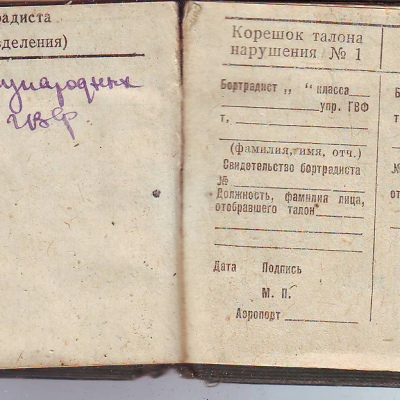 радиста
зделения)
ународных
ГВФ
Корешок талона
нарушения № 1
Бортрадист „ “ класса
упр. ГВФ
т,
(фамилия, имя, отч.)
Свидетельство бортрадиста
№
Должность, фамилия лица,
отобравшего талон
Дата Подпись
М. П.
Аэропорт